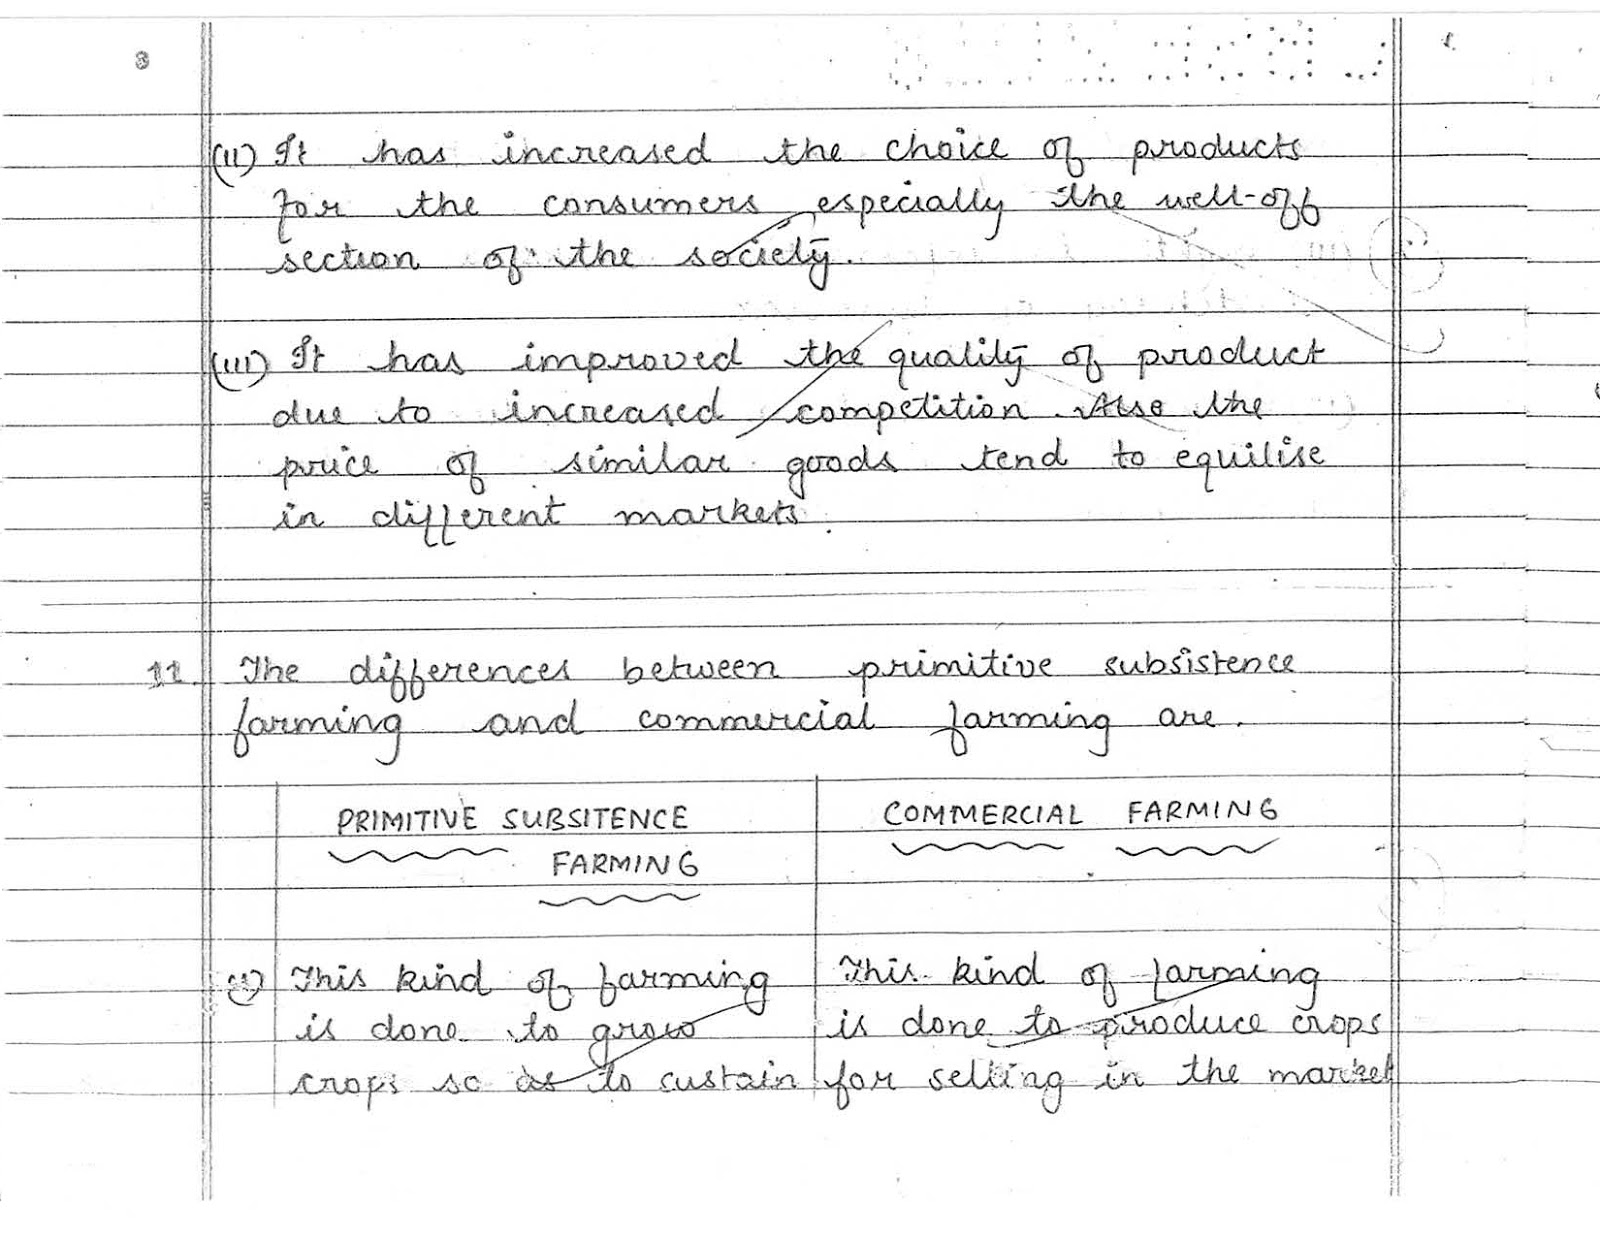 (ii) It has increased the choice of products
for the consumers especially the well-off
section of the society.
(iii) It has improved the quality of product
due to increased competition. Also the
price of similar goods tend to equilise
in different markets.
11. The differences between primitive subsistence
farming and commercial farming are.
PRIMITIVE SUBSITENCE
FARMING
COMMERCIAL FARMING
(i) This kind of farming
is done to grow
crops so as to sustain
This kind of farming
is done to produce crops
for selling in the market